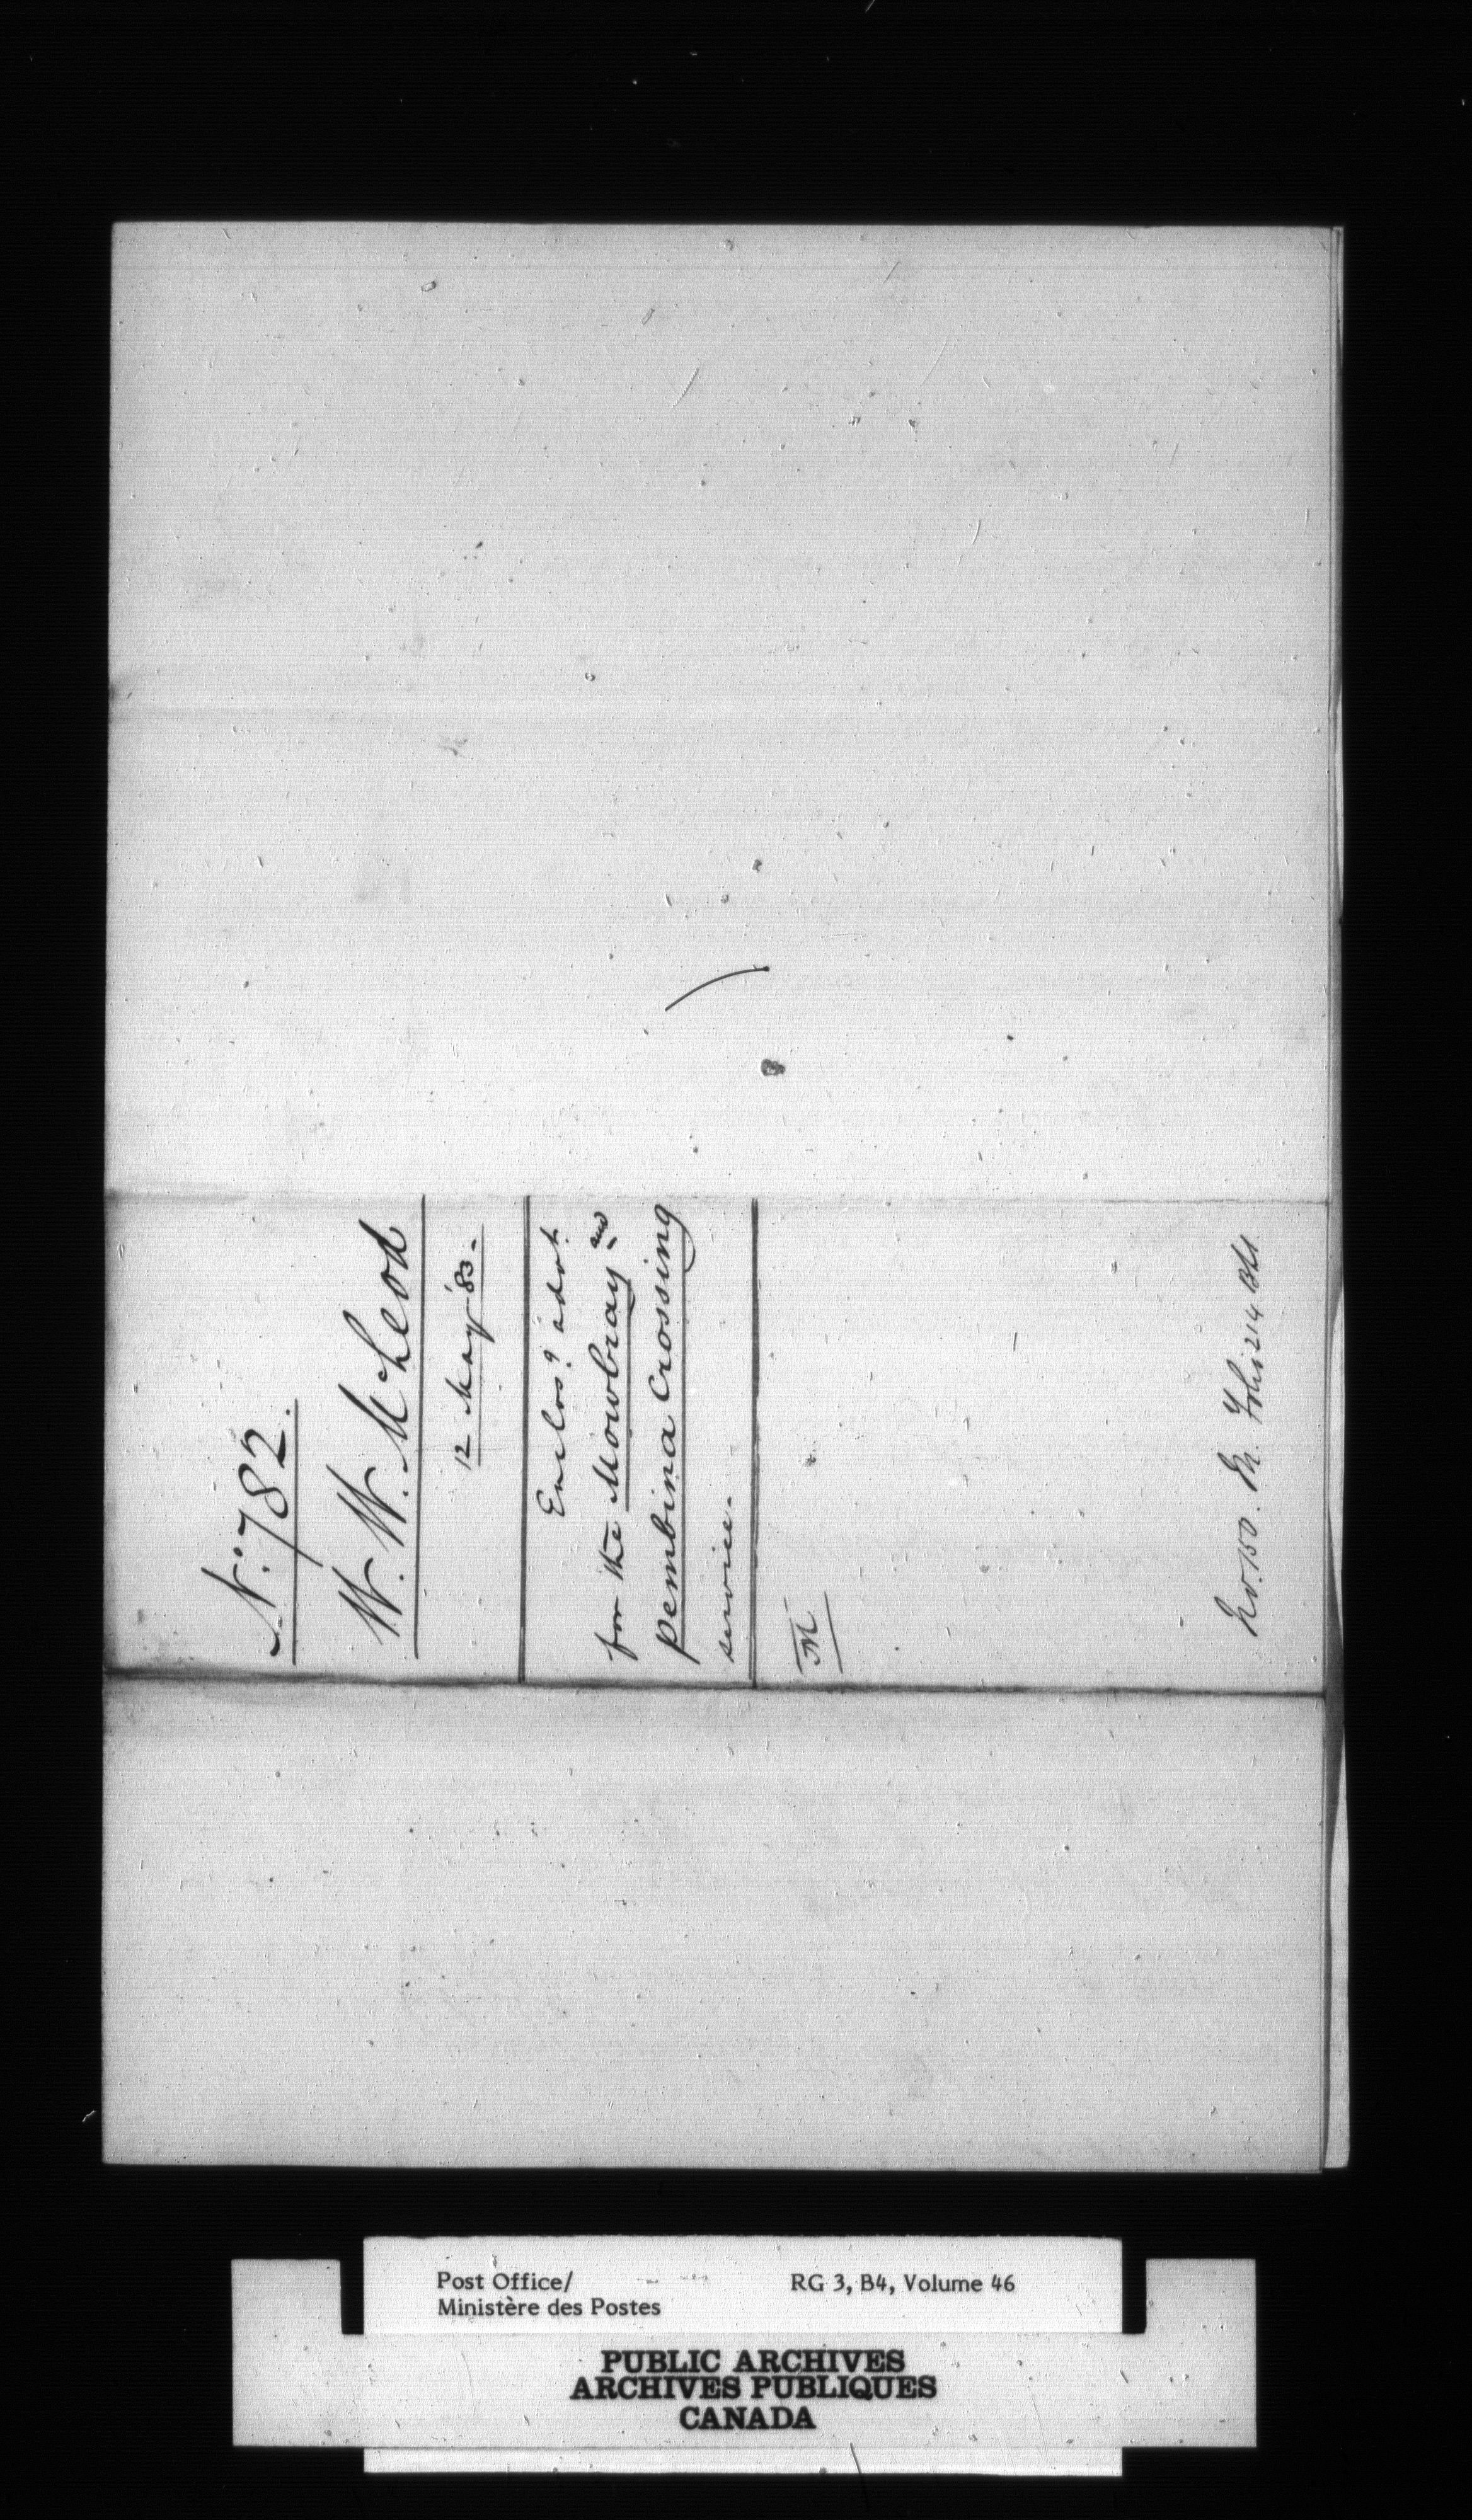 No. 782.
W. W. McLeod
12 May '83.
Enclos? advt.
for the Mowbray and
Pembina Crossing
service.
M
No. 150. M. Folio 214
Post Office/
Ministère des Postes
RG 3, B4, Volume 46
PUBLIC ARCHIVES
ARCHIVES PUBLIQUES
CANADA